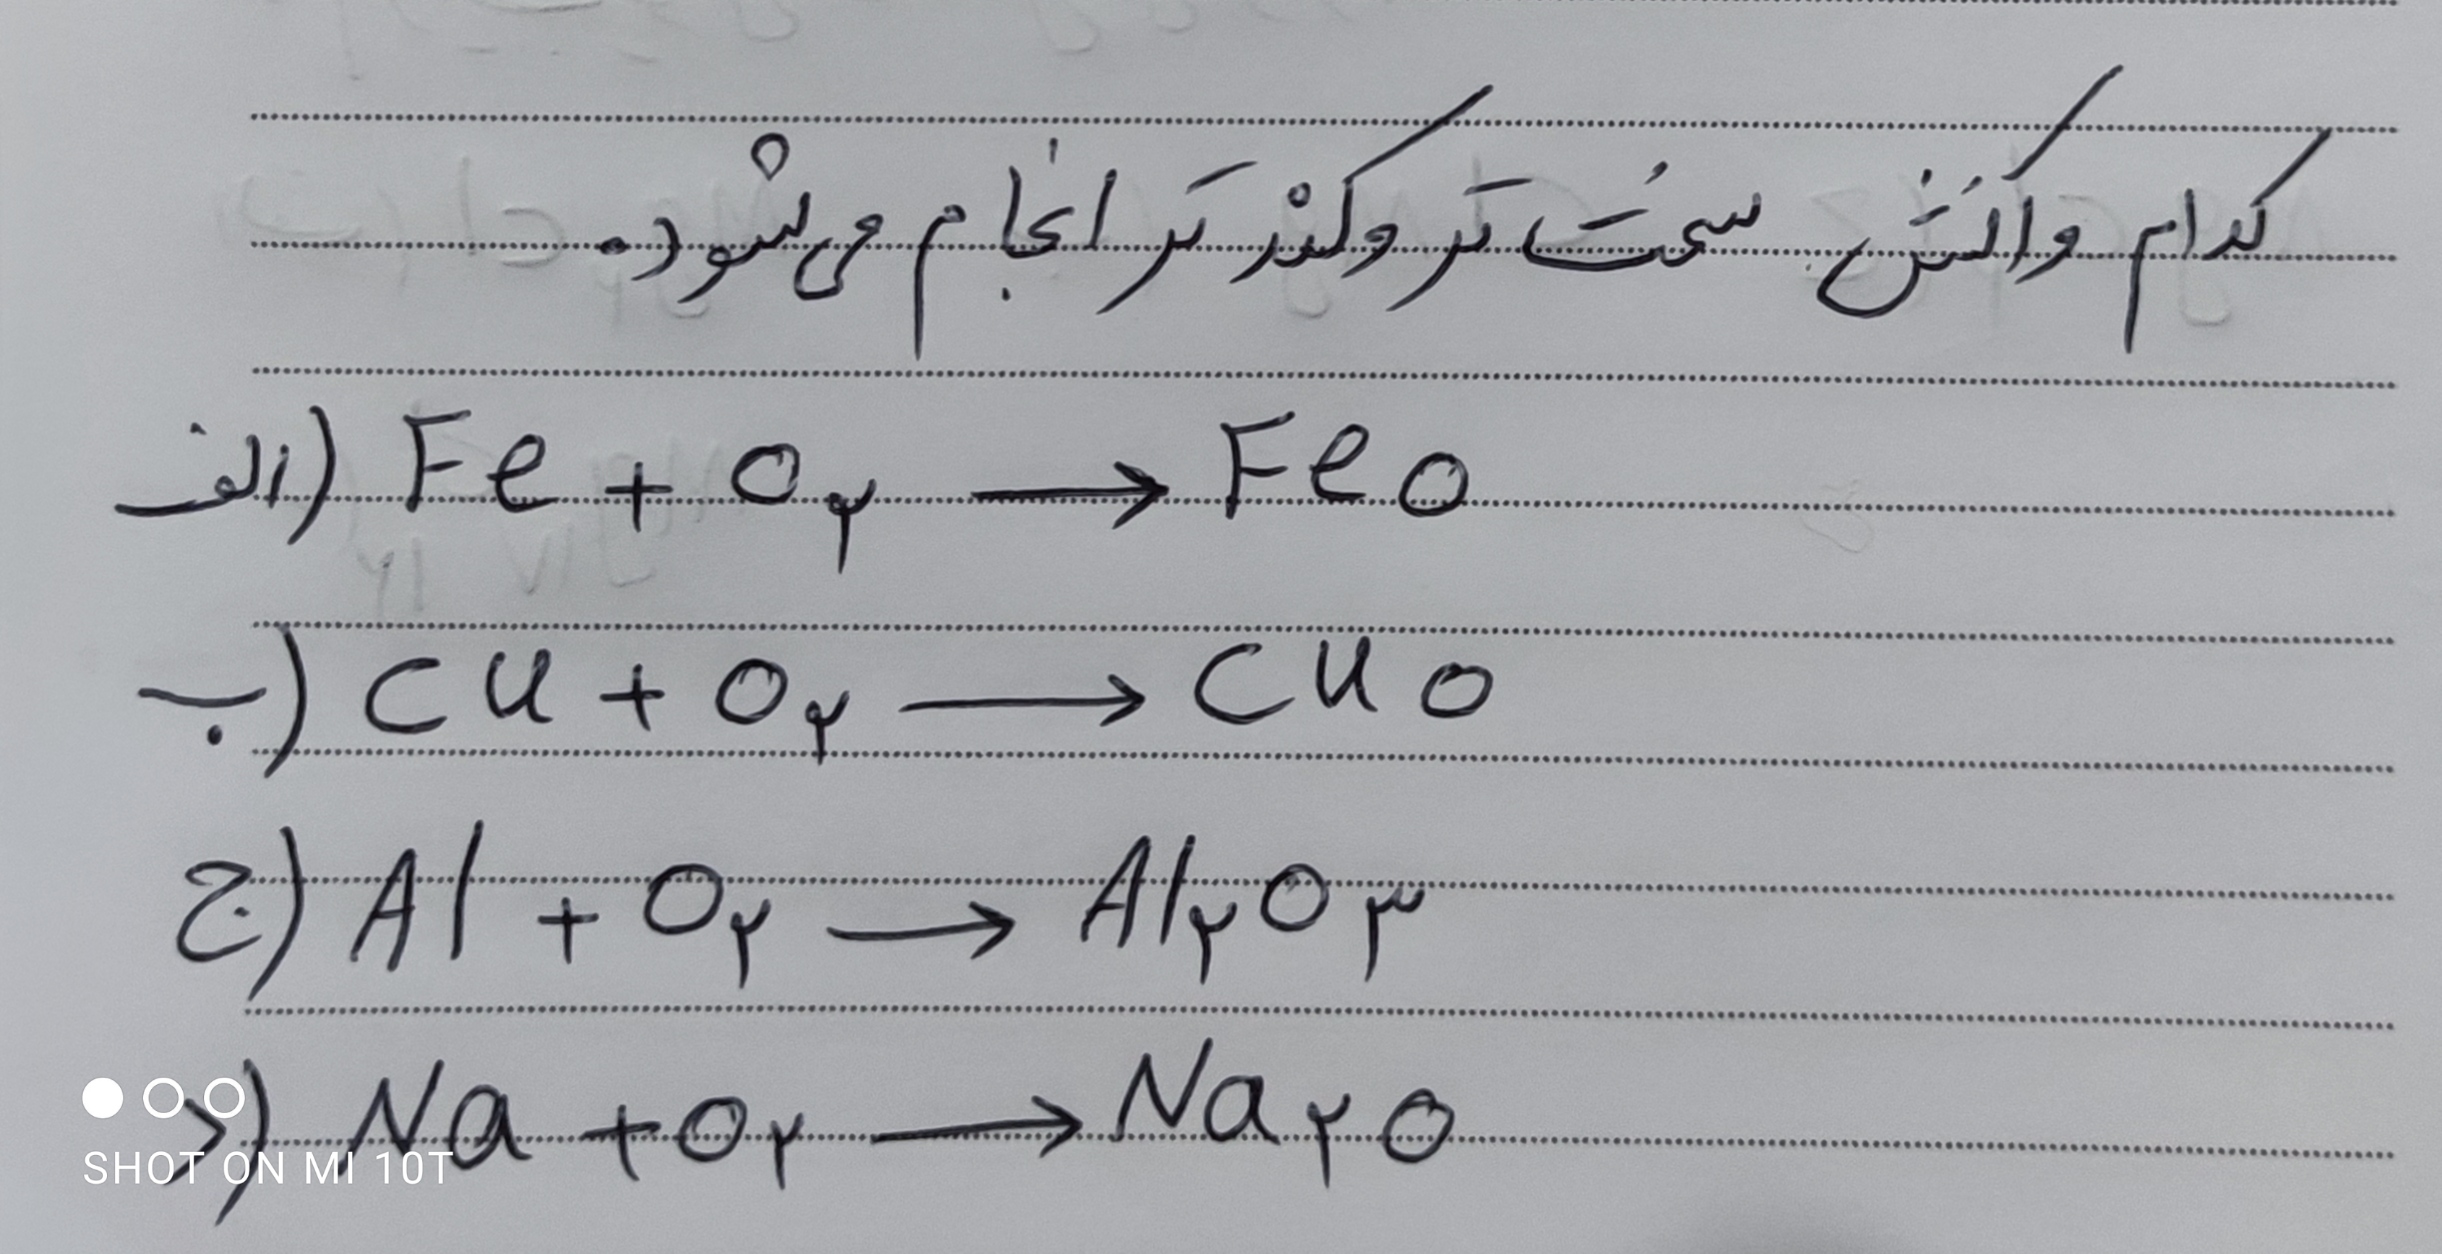 کدام واکنش سخت تر و کندتر انجام می شود.
الف) Fe + O₂ → FeO
ب) Cu + O₂ → CuO
ج) Al + O₂ → Al₂O₃
د) Na + O₂ → Na₂O
SHOT ON MI 10T